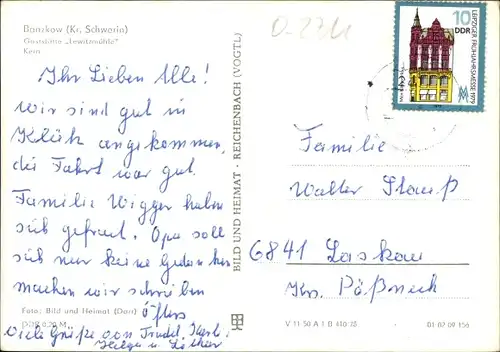 Banzkow (Kr. Schwerin)
Gaststätte „Lewitzmühle"
O-2324
LEIPZIGER FRÜHJAHRSMESSE 1979
10
DDR
Ihr Lieben Alle!
wir sind gut in
Klütz angekommen,
die Fahrt war gut.
Familie Wigger haben
sich gefreut. Opa soll
sich nur keine Gedanken
machen wir schreiben
öfters
viele Grüße von Trudel, Karl,
Helga u. Lothar
Foto: Bild und Heimat (Darr)
DDR 0,20 M
BILD UND HEIMAT · REICHENBACH (VOGTL)
Familie
Walter Stauß
6841 Laskau
Krs. Pößneck
V 11 50 A 1 B 410/78
01 02 09 156